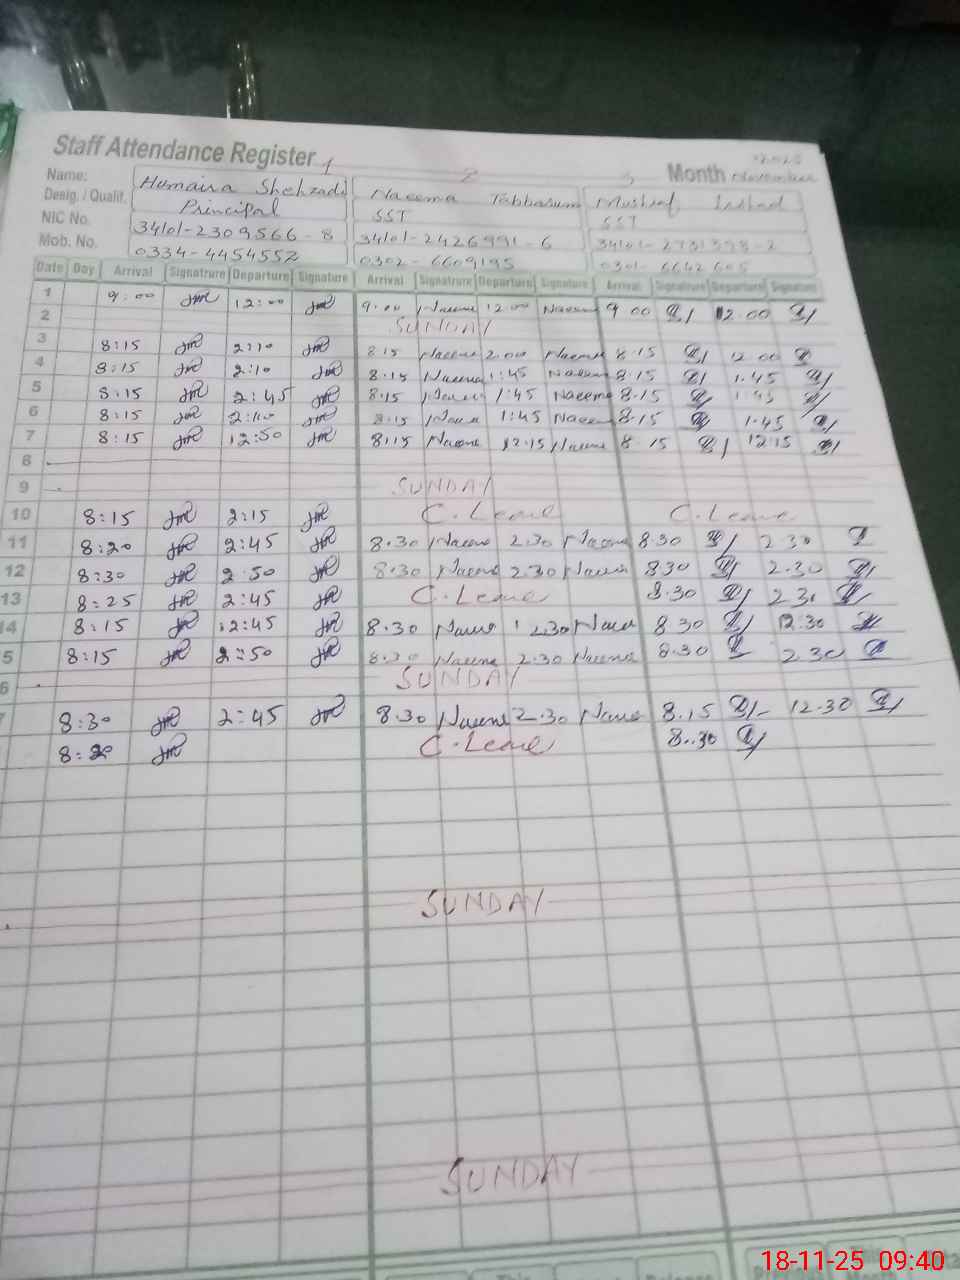 Staff Attendance Register 1
2
3
Month November
Name: Humaira Shehzadi Naeema Tabbasum
Desig. / Qualif. Principal SST SST
NIC No. 34101-2309566-8 34101-2426991-6
Mob. No. 0334-4454552 0302-6609195
Date Day Arrival Signatrure Departure Signature Arrival Signatrure Departure Signature Arrival Signatrure Departure Signature
1 9:00 12:00 9.00 Naeema 12.00 Naeema 9 00 12 00
2 SUNDAY
3 8:15 2:10 8.15 Naeema 2.00 Naeema 8.15 12 00
4 8:15 2:10 8.15 Naeema 1:45 Naeema 8.15 1.45
5 8:15 2:45 8.15 Naeema 1:45 Naeema 8.15 1.45
6 8:15 8.15 Naeema 1:45 Naeema 8.15 1.45
7 8:15 12:50 8:15 Naeema 12.15 Naeema 8.15 12.15
8
9 SUNDAY
10 8:15 2:15 C. Leave C. Leave
11 8:20 2:45 8.30 Naeema 2.30 Naeema 8 30 2 30
12 8:30 2.50 8.30 Naeema 2.30 Naeema 8 30 2.30
13 8:25 2:45 C. Leave 8.30 2 30
14 8:15 12:45 8.30 Naeema 12.30 Naeema 8 30 12.30
5 8:15 2:50 8.30 Naeema 2.30 Naeema 8.30 2 30
6 SUNDAY
8:30 2:45 8.30 Naeema 2.30 Naeema 8.15 12.30
8:20 C. Leave 8.30
SUNDAY
SUNDAY
18-11-25 09:40